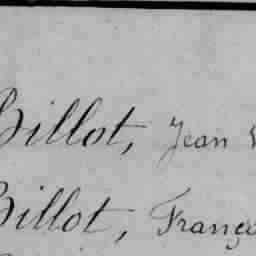 Billot, Jean
Billot, Franço